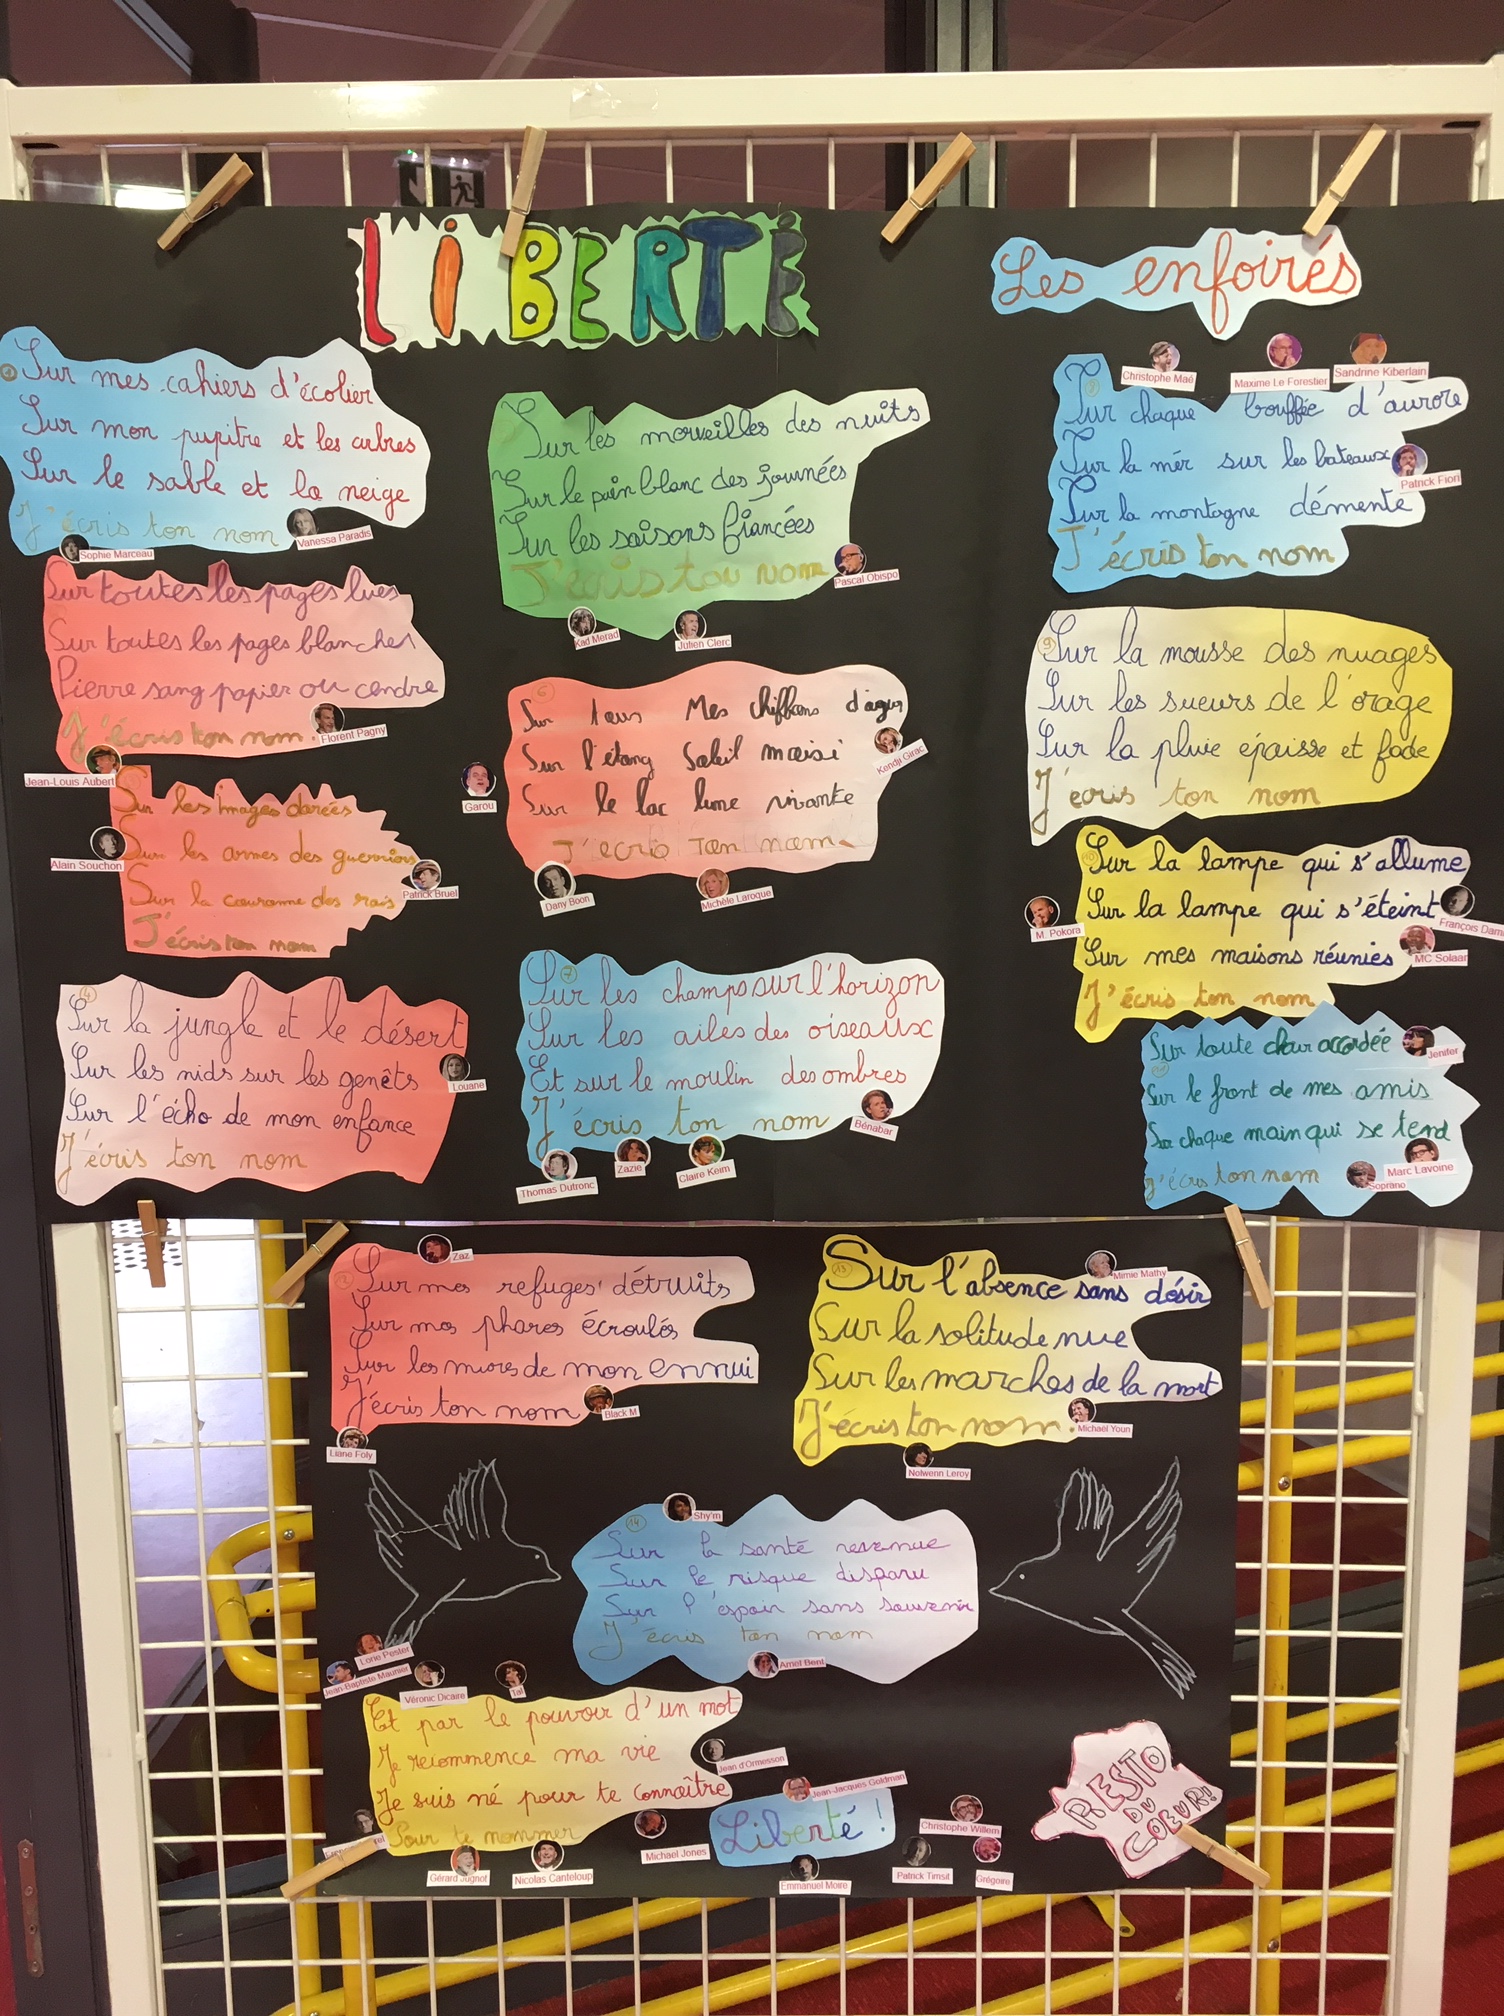 LIBERTÉ
Les enfoirés
1
Sur mes cahiers d'écolier
Sur mon pupitre et les arbres
Sur le sable et la neige
J'écris ton nom
Sophie Marceau
Vanessa Paradis
Sur toutes les pages lues
Sur toutes les pages blanches
Pierre sang papier ou cendre
J'écris ton nom.
Florent Pagny
Jean-Louis Aubert
Sur les images dorées
Sur les armes des guerriers
Sur la couronne des rois
J'écris ton nom
Alain Souchon
Patrick Bruel
4
Sur la jungle et le désert
Sur les nids sur les genêts
Sur l'écho de mon enfance
J'écris ton nom
Louane
Sur les merveilles des nuits
Sur le pain blanc des journées
Sur les saisons fiancées
J'écris ton nom
Pascal Obispo
Kad Merad
Julien Clerc
6
Sur tous Mes chiffons d'azur
Sur l'étang Soleil moisi
Sur le lac lune vivante
J'ecris Ton nom
Garou
Kendji Girac
Dany Boon
Michèle Laroque
7
Sur les champs sur l'horizon
Sur les ailes des oiseaux
Et sur le moulin des ombres
J'écris ton nom
Bénabar
Thomas Dutronc
Zazie
Claire Keim
Christophe Maé
Maxime Le Forestier
Sandrine Kiberlain
Sur chaque bouffée d'aurore
Sur la mer sur les bateaux
Sur la montagne démente
J'écris ton nom
Patrick Fiori
9
Sur la mousse des nuages
Sur les sueurs de l'orage
Sur la pluie épaisse et fade
J'écris ton nom
10
Sur la lampe qui s'allume
Sur la lampe qui s'éteint
Sur mes maisons réunies
J'écris ton nom
M. Pokora
François Dami
MC Solaar
Sur toute chair accordée
Sur le front de mes amis
Sur chaque main qui se tend
J'écris ton nom
Jenifer
Marc Lavoine
Soprano
Zaz
12
Sur mes refuges détruits
Sur mes phares écroulés
Sur les murs de mon ennui
J'écris ton nom
Black M
Liane Foly
13
Sur l'absence sans désir
Sur la solitude nue
Sur les marches de la mort
J'écris ton nom.
Mimie Mathy
Michaël Youn
Nolwenn Leroy
Shy'm
14
Sur la santé revenue
Sur le risque disparu
Sur l'espoir sans souvenir
J'écris ton nom
Amel Bent
Lorie Pester
Jean-Baptiste Maunier
Véronic Dicaire
Tal
Et par le pouvoir d'un mot
Je recommence ma vie
Je suis né pour te connaître
Pour te nommer
Jean d'Ormesson
Jean-Jacques Goldman
Liberté !
Michael Jones
Gérard Jugnot
Nicolas Canteloup
Emmanuel Moire
Christophe Willem
Patrick Timsit
Grégoire
RESTO
DU
COEUR!